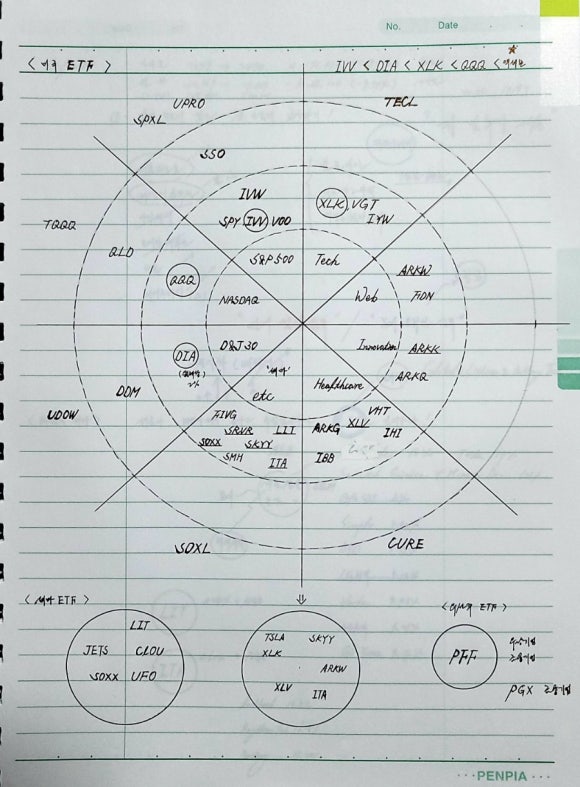 No. Date
<미국 ETF> IVV < DIA < XLK < QQQ <
UPRO TECL
SPXL
SSO
IVW XLK, VGT
SPY IVV VOO IYW
TQQQ
QLD S&P500 Tech ARKW
QQQ Web FDN
NASDAQ
D&J30 Innovation ARKK
DIA
2% "섹터" ARKQ
DDM etc Healthcare
UDOW FIVG VHT
SRVR LIT ARKG XLV IHI
SOXX SKYY
SMH ITA IBB
SOXL CURE
<섹터 ETF> ⇓ <ETF>
LIT TSLA SKYY
JETS CLOU XLK PFF
SOXX UFO ARKW
XLV ITA PGX 금융기업
···PENPIA···